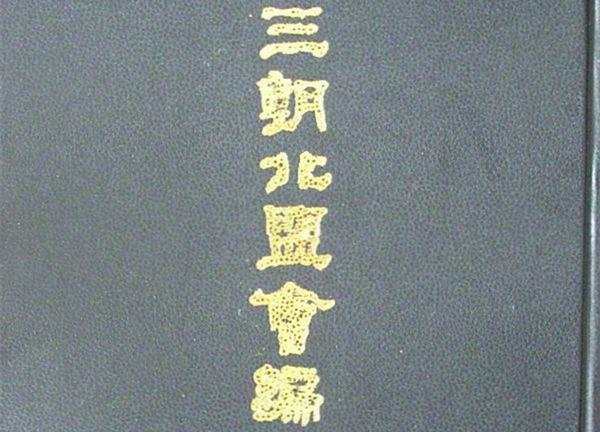 三朝北盟會編